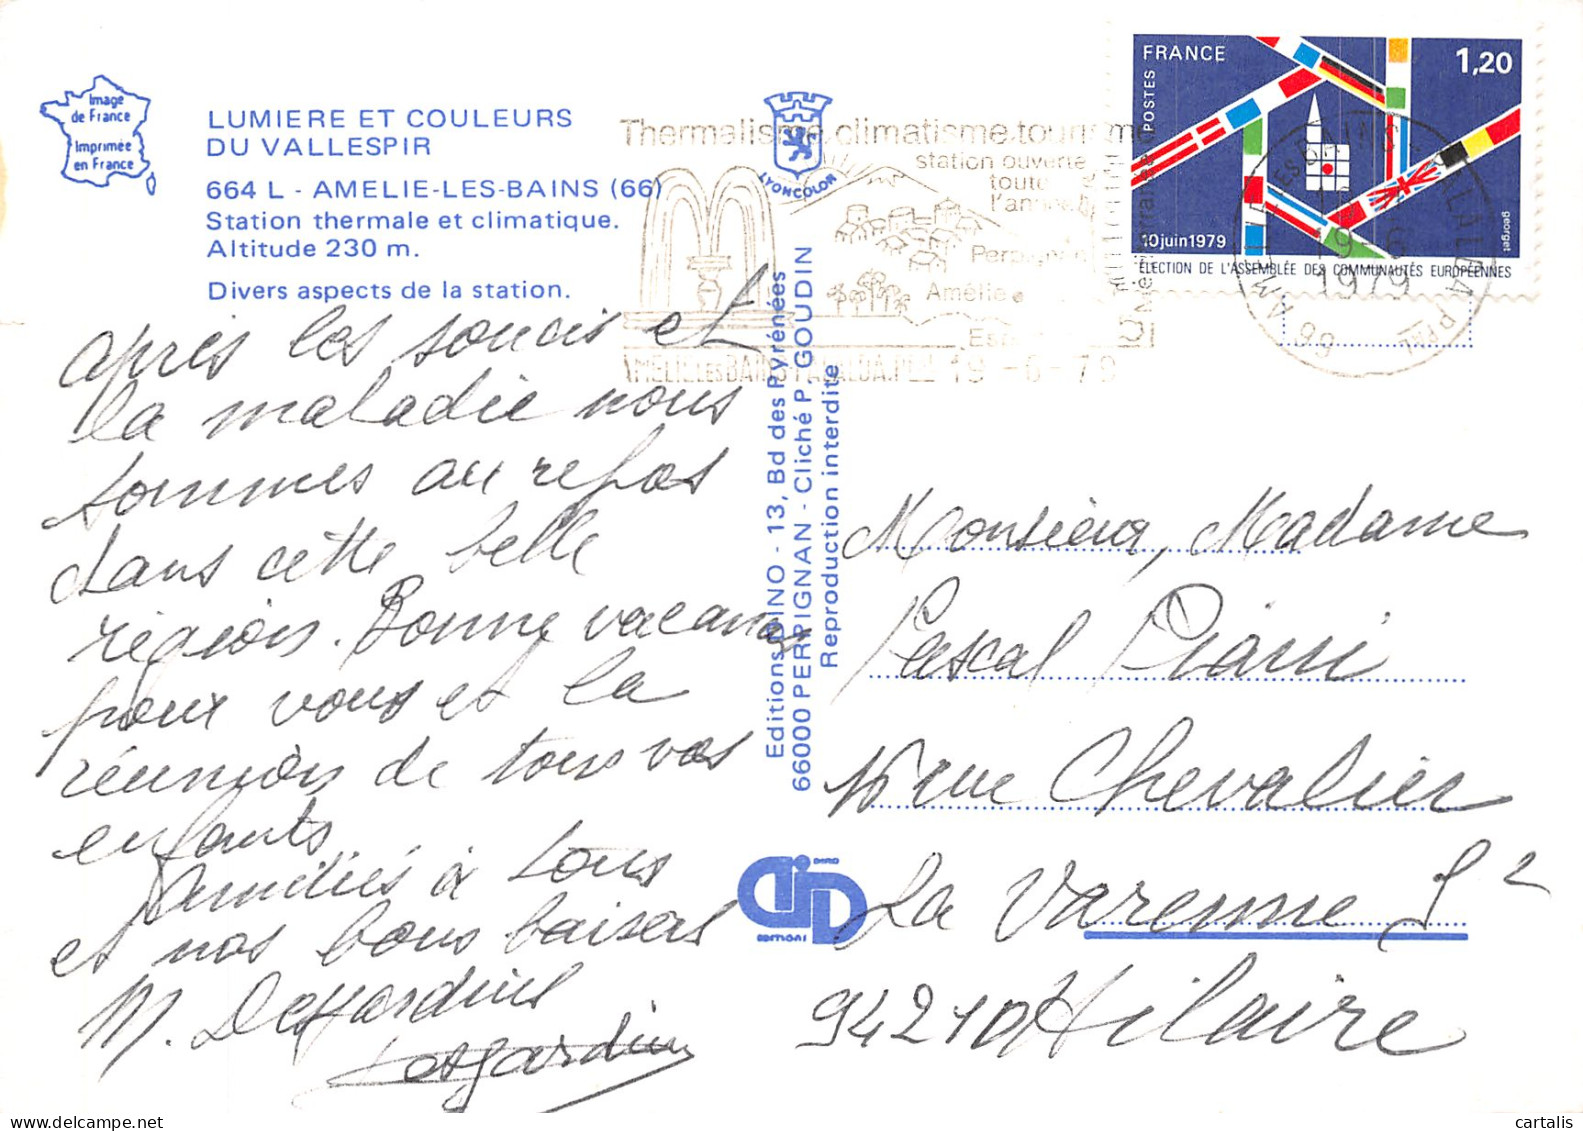 Image
de France
Imprimée
en France
LUMIERE ET COULEURS
DU VALLESPIR
664 L - AMELIE-LES-BAINS (66)
Station thermale et climatique.
Altitude 230 m.
Divers aspects de la station.
après les soucis et
la maladie nous
sommes au repos
dans cette belle
région. Bonne vacances
pour vous et la
réunion de tous vos
enfants
Amitiés à tous
et nos bons baisers
M. Desjardins
Desjardins
LYONCOLOR
Editions DINO - 13, Bd des Pyrénées
66000 PERPIGNAN - Cliché P. GOUDIN
Reproduction interdite
DINO
EDITIONS
Thermalisme.climatisme.tourisme
station ouverte
toute
l'année
Perpignan
Amélie
AMELIE LES BAINS-PALALDA.P.L 19 -6-79
FRANCE
1,20
POSTES
10 juin 1979
georget
ÉLECTION DE L'ASSEMBLÉE DES COMMUNAUTÉS EUROPÉENNES
66 AMELIE LES BAINS PALALDA PPAL
19-6
1979
Monsieur, Madame
Pascal Piani
16 rue Chevalier
La Varenne St
94210 Hilaire
delcampe.net
cartalis